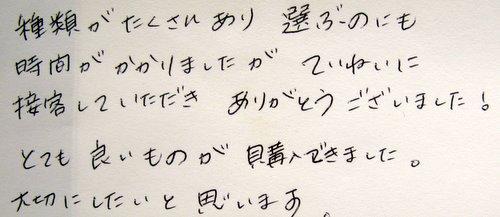 種類がたくさんあり 選ぶのにも
時間がかかりましたが ていねいに
接客していただき ありがとうございました!
とても良いものが購入できました。
大切にしたいと思います。